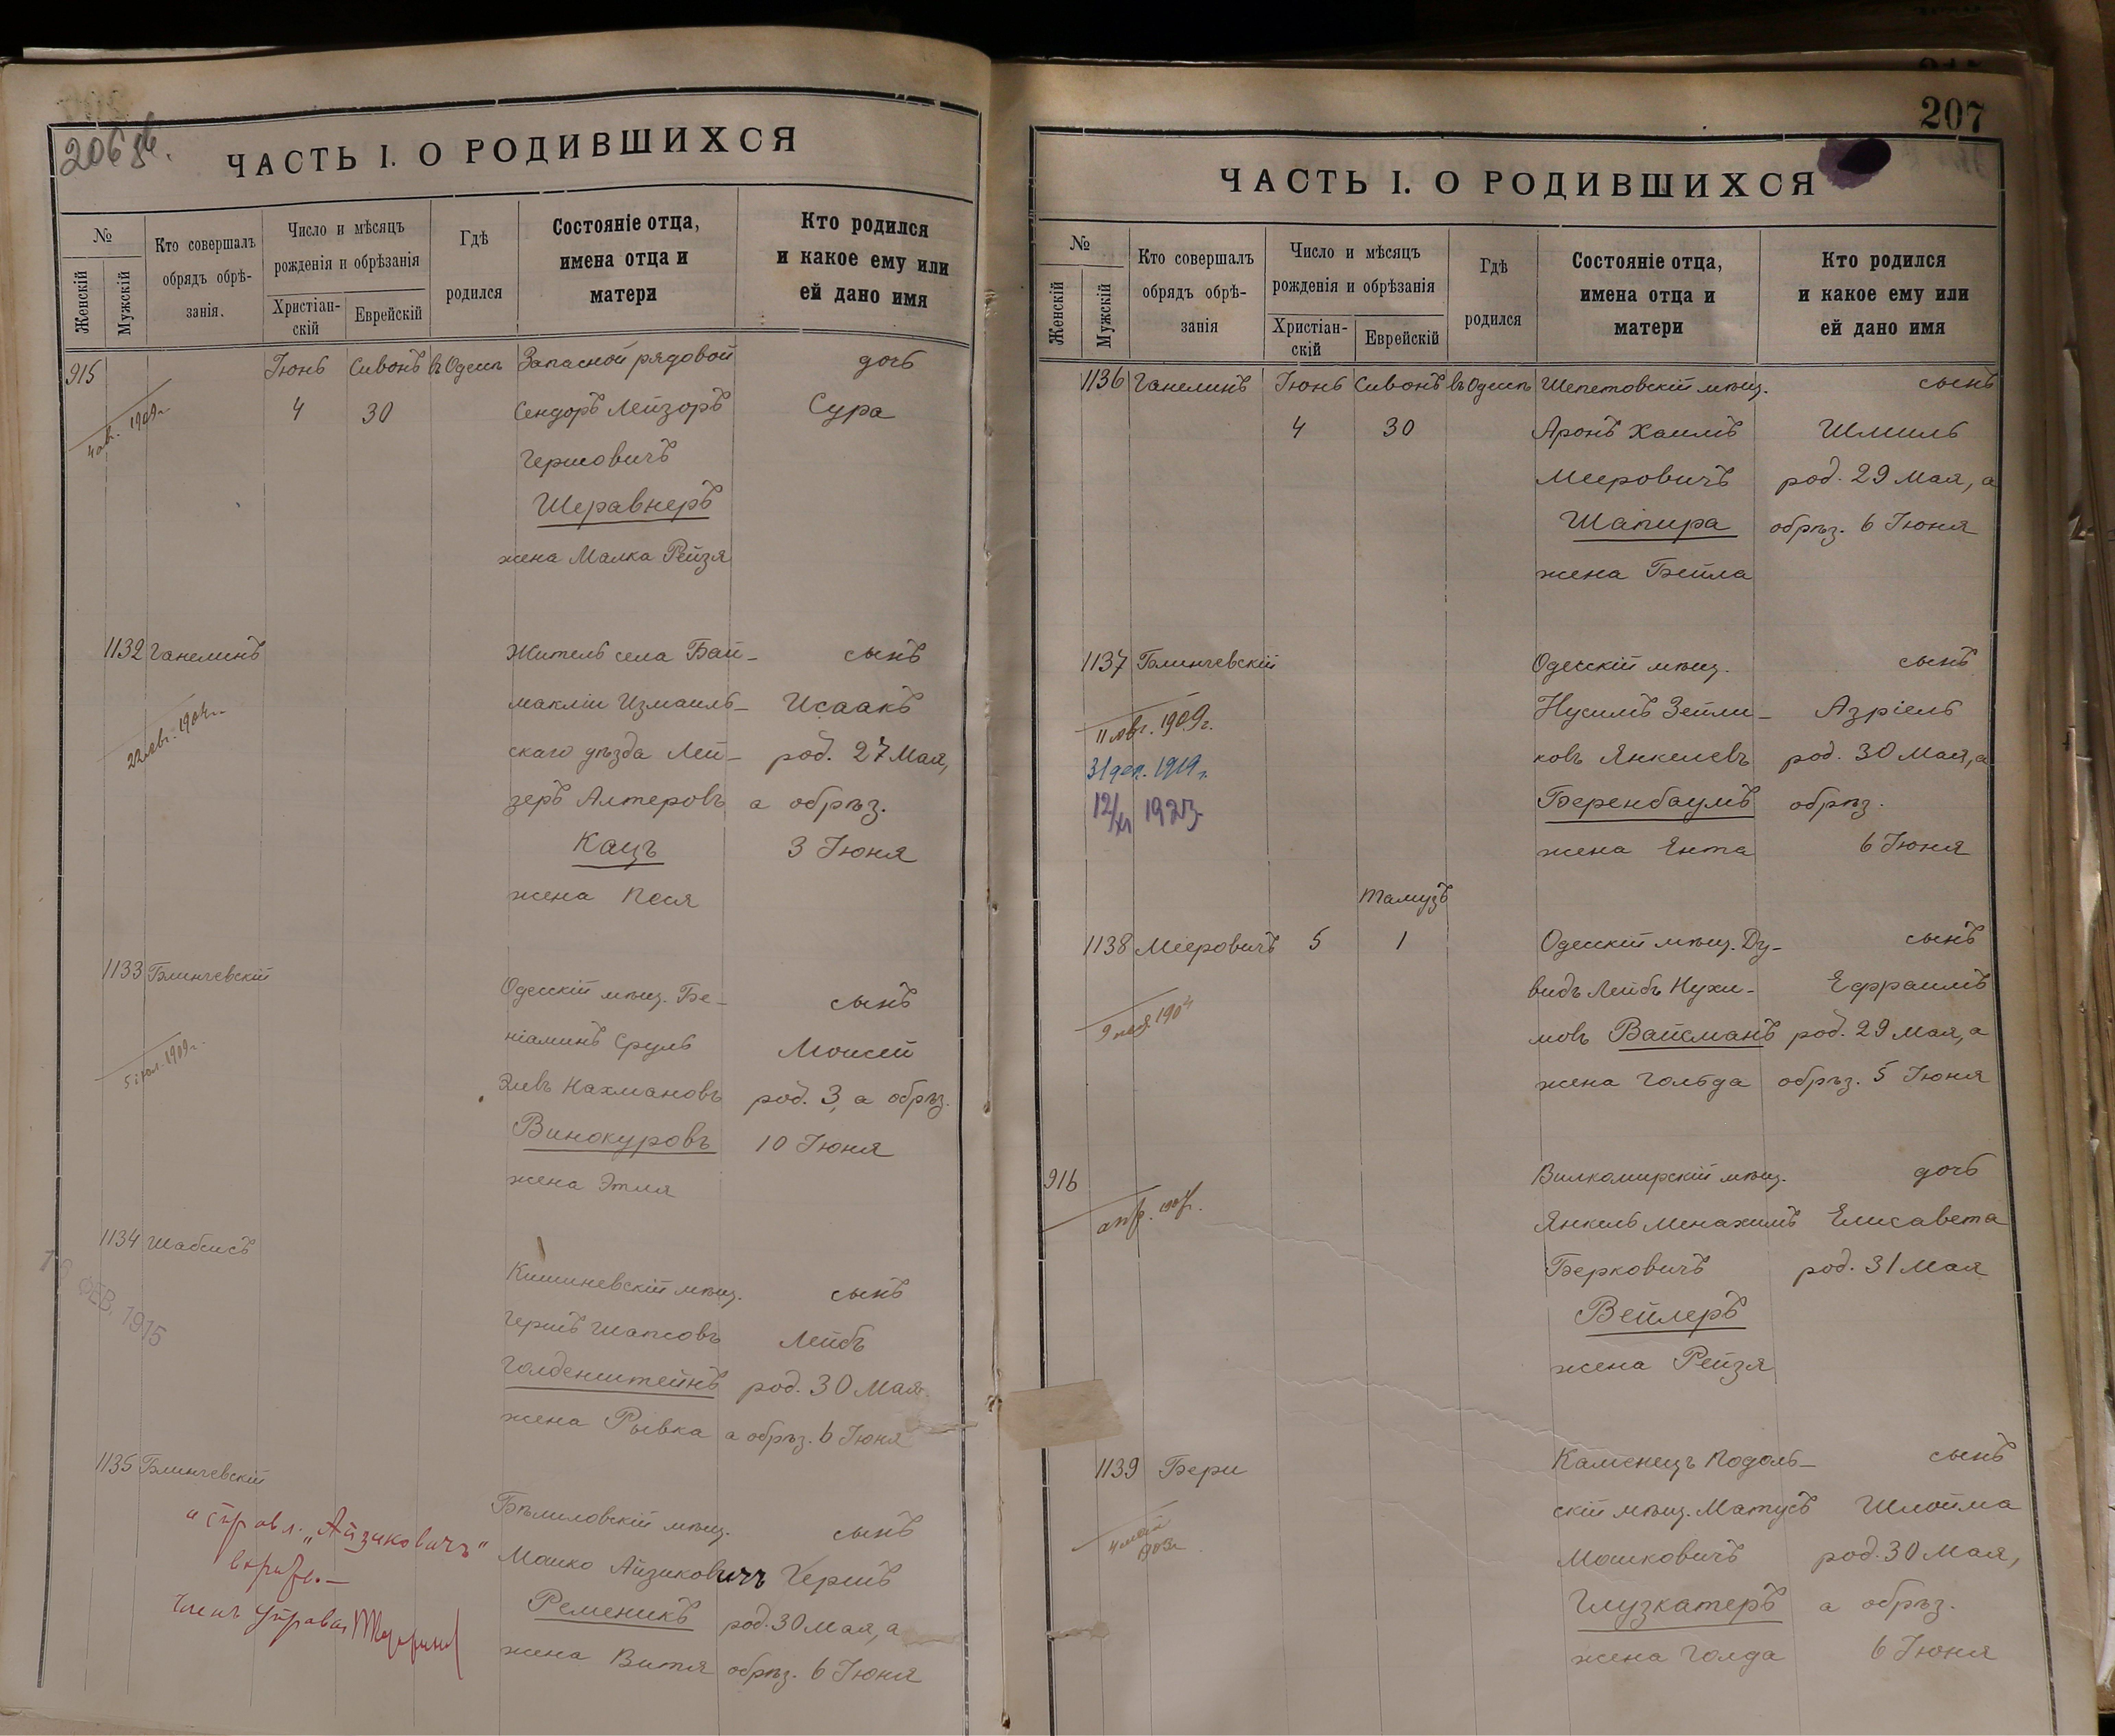 206 об.
ЧАСТЬ I. О РОДИВШИХСЯ
№
Женскій
Мужскій
Кто совершалъ
обрядъ обрѣ-
занія.
Число и мѣсяцъ
рожденія и обрѣзанія
Христіан-
скій
Еврейскій
Гдѣ
родился
Состояніе отца,
имена отца и
матери
Кто родился
и какое ему или
ей дано имя
915 Іюнь Сивонъ въ Одессѣ Запасной рядовой дочь
4 30 Сендоръ Лейзоръ Сура
Гершовичъ
Шеравнеръ
жена Малка Рейзя
1909г.
1132 Ганелинъ Житель села Бай- сынъ
маклiи Измаиль- Исаакъ
скаго уѣзда Лей- род. 27 Мая,
зеръ Алтеровъ а обрѣз.
Кацъ 3 Іюня
жена Песя
1133 Блинчевскій Одесскій мѣщ. Бе- сынъ
ніаминъ Сруль Моисей
Зивъ Нахмановъ род. 3, а обрѣз.
Винокуровъ 10 Іюня
жена Этля
5 іюл. 1909г.
1134 Шабсисъ Кишиневскій мѣщ. сынъ
Гершъ Шапсовъ Лейбъ
Голденштейнъ род. 30 Мая
жена Рывка а обрѣз. 6 Іюня
ФЕВ. 1915
1135 Блинчевскій Бѣлиловскій мѣщ. сынъ
Мошко Айзиковичъ Гершъ
Ременикъ род. 30 Мая, а
жена Витя обрѣз. 6 Іюня
исправл. „Айзиковичъ"
вѣрно.—
Членъ Управы
207
ЧАСТЬ I. О РОДИВШИХСЯ
№
Женскій
Мужскій
Кто совершалъ
обрядъ обрѣ-
занія
Число и мѣсяцъ
рожденія и обрѣзанія
Христіан-
скій
Еврейскій
Гдѣ
родился
Состояніе отца,
имена отца и
матери
Кто родился
и какое ему или
ей дано имя
1136 Ганелинъ Іюнь Сивонъ въ Одессѣ Шепетовскій мѣщ. сынъ
4 30 Аронъ Хаимъ Шмиль
Мееровичъ род. 29 Мая, а
Шапира обрѣз. 6 Іюня
жена Бейла
1137 Блинчевскій Одесскій мѣщ. сынъ
Нусимъ Зейли- Азріель
ковъ Янкелевъ род. 30 Мая, а
Беренбаумъ обрѣз.
жена Янта 6 Іюня
11 авг. 1909г.
31 дек. 1919г.
12/XI 1923
Тамузъ
1138 Мееровичъ 5 1 Одесскій мѣщ. Ду- сынъ
видъ Лейбъ Нухи- Ефраимъ
мовъ Вайсманъ род. 29 Мая, а
жена Гольда обрѣз. 5 Іюня
916 Вилкомирскій мѣщ. дочь
Янкель Менахимъ Елисавета
Берковичъ род. 31 Мая
Вейлеръ
жена Рейзя
1139 Бери Каменецъ Подоль- сынъ
скій мѣщ. Матусъ Шлойма
Мошковичъ род. 30 Мая,
Глузкатеръ а обрѣз.
жена Голда 6 Іюня